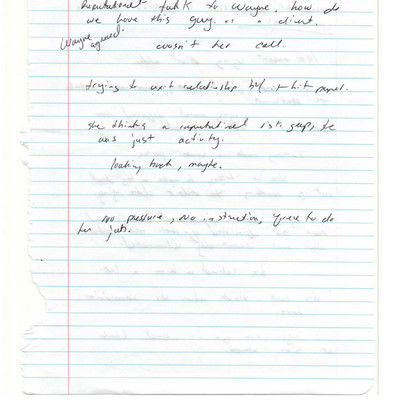 Reputational talk to Wayne, how do
we have this guy as a client.
Wayne agreed.
wasn't her call.
trying to exit relationship b/f it hit panel.
she thinks a reputational risk
was just activity.
looking back, maybe.
no pressure, no instruction, to do
her job.